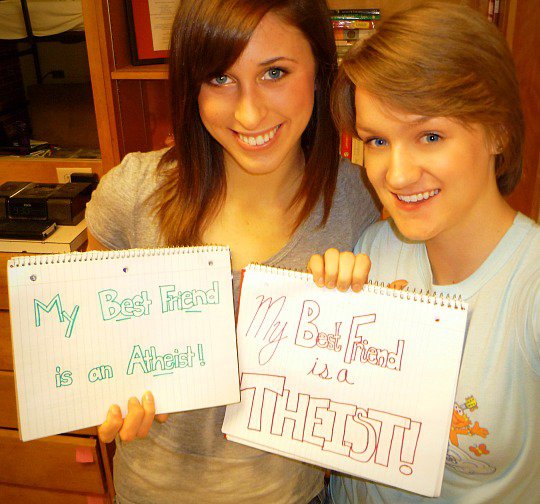 My Best Friend
is an Atheist!
My Best Friend
is a
THEIST!